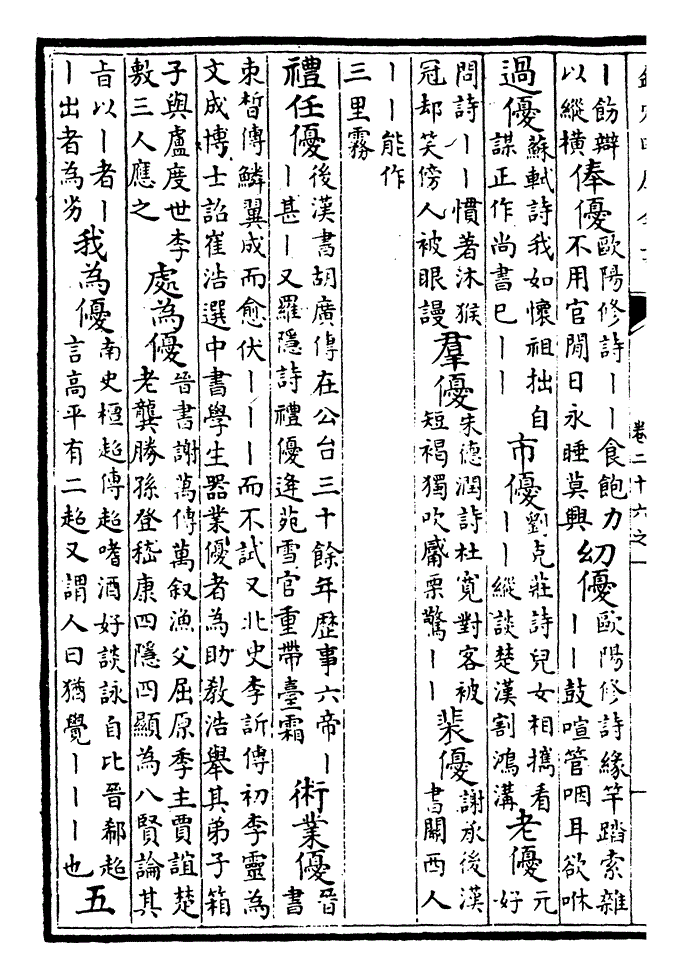 卷二十六之一
丨飭辯
以縱橫
俸優
歐陽修詩丨丨食飽力
不用官閒日永睡莫興
幻優
歐陽修詩緣竿踏索雜
丨丨鼓喧管咽耳欲咻
過優
蘇軾詩我如懷祖拙自
謀正作尚書巳丨丨
市優
劉克莊詩兒女相攜看
丨丨縱談楚漢割鴻溝
老優
元
好
問詩丨丨慣著沐猴
冠却笑傍人被眼謾
羣優
朱德潤詩杜寬對客被
短褐獨吹觱栗驚丨丨
裴優
謝承後漢
書關西人
丨丨能作
三里霧
禮任優
後漢書胡廣傳在公台三十餘年歴事六帝丨
丨甚丨又羅隱詩禮優逄苑雪官重帶臺霜
術業優
晉
書
束晳傳鱗翼成而愈伏丨丨丨而不試又北史李訢傳初李靈為
文成博士詔崔浩選中書學生器業優者為助敎浩舉其弟子箱
子與盧度世李
敷三人應之
處為優
晉書謝萬傳萬叙漁父屈原季主賈誼楚
老龔勝孫登嵇康四隱四顯為八賢論其
㫖以丨者丨
丨出者為劣
我為優
南史檀超傳超嗜酒好談詠自比晉郗超
言高平有二超又謂人曰猶覺丨丨丨也
五